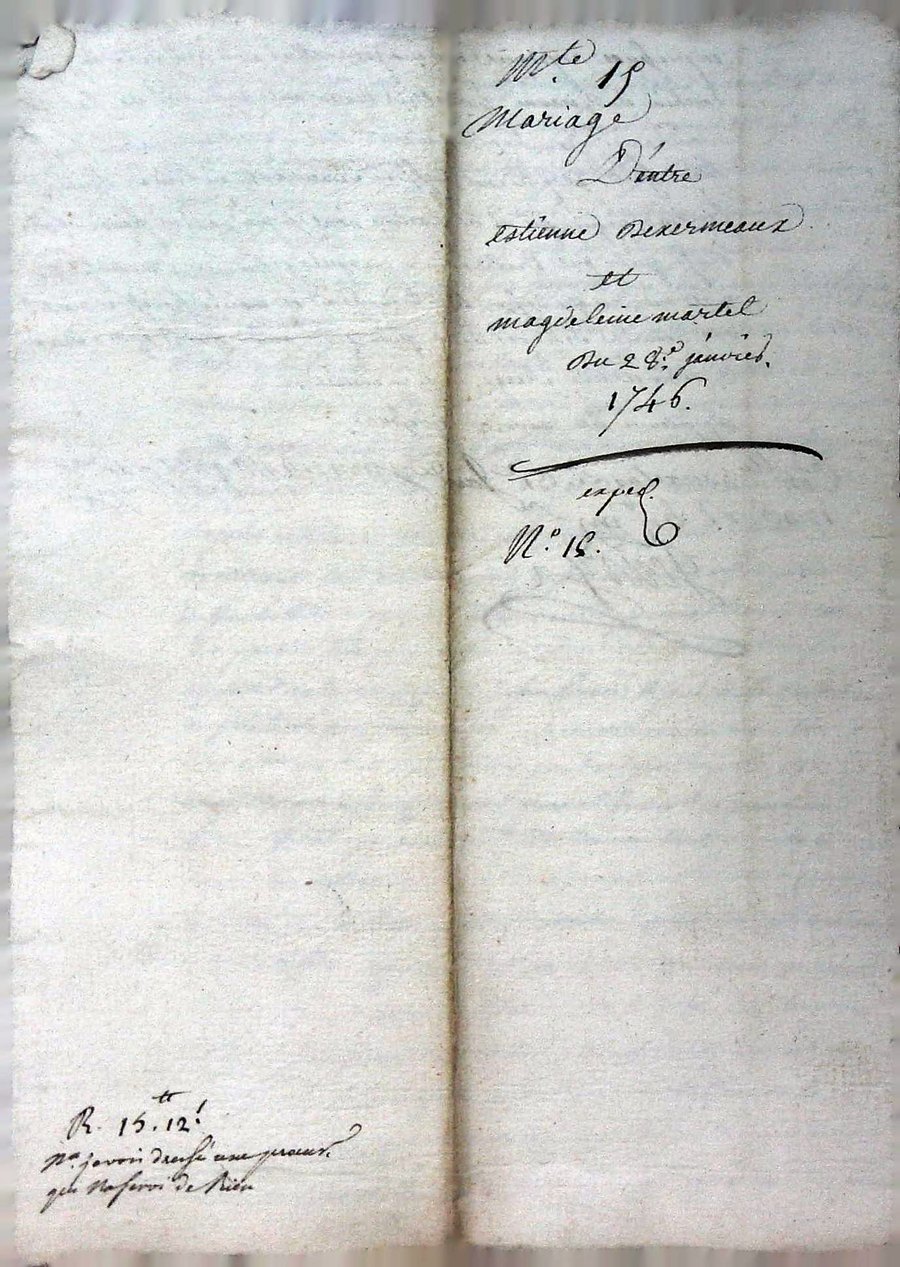 Mte. 15
Mariage
D'entre
estienne Dexermeaux
et
magdeleine martel
Du 28e. janvier.
1746.
exped.
No. 15.
R. 15tt. 12s
Na. javois dressé une procur.
qui na servi de Rien